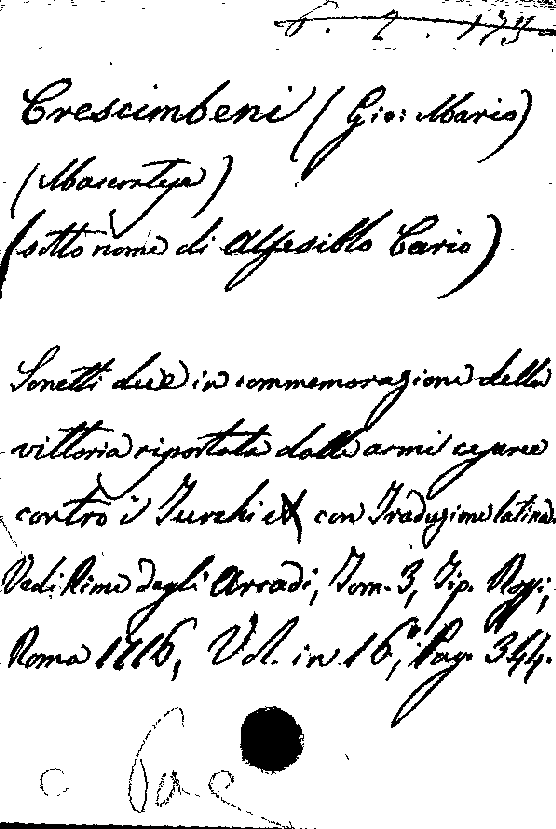 6. 2. 173
Crescimbeni (Gio: Mario)
(Macerateje)
(sotto nome di Alfesibto Cario)
Sonetti due in commemorazione della
vittoria riportata dalle armi cesaree
contro i Turchi con Traduzione latina.
Vedi Rime degli Arcadi, Tom. 3, Tip. Rossi,
Roma 1716, Vol. in 16°, Pag. 344.
Pac